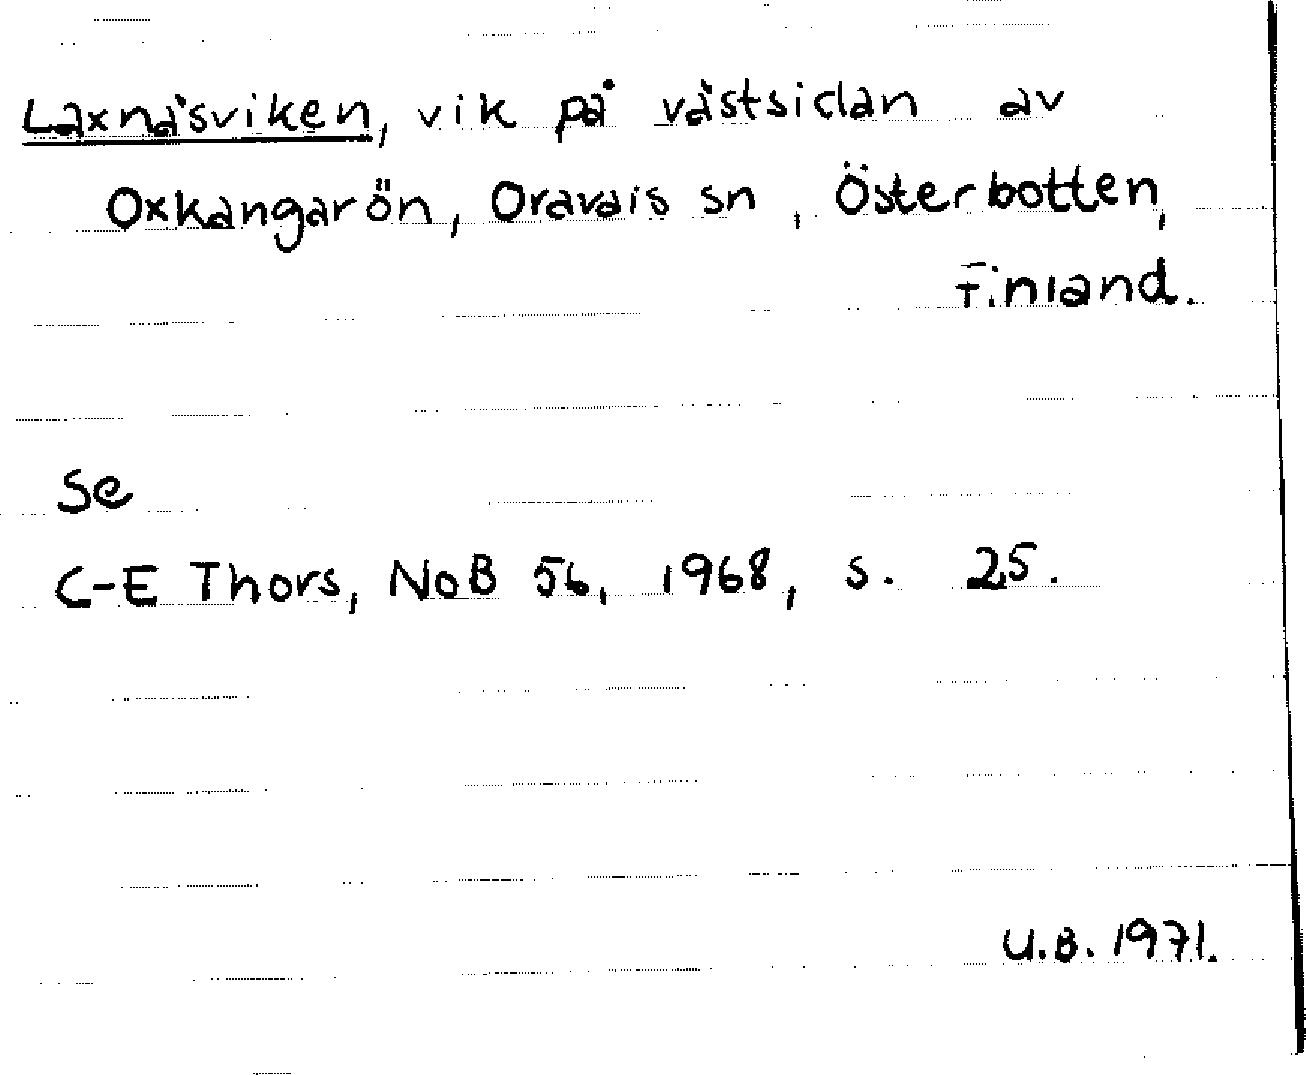 Laxnäsviken, vik på västsidan av
Oxkangarön, Oravais sn, Österbotten,
Finland.
Se
C-E Thors, NoB 56, 1968, s. 25.
U.B. 1971.